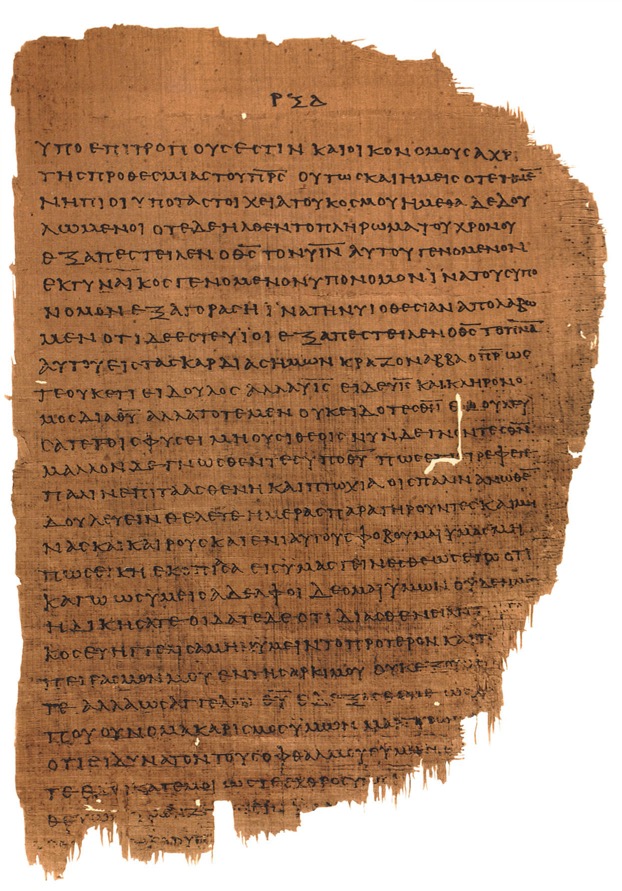 ΡΞΔ
ΥΠΟ ΕΠΙΤΡΟΠΟΥΣ ΕΣΤΙΝ ΚΑΙ ΟΙΚΟΝΟΜΟΥΣ ΑΧΡΙ
ΤΗΣ ΠΡΟΘΕΣΜΙΑΣ ΤΟΥ Π̅Ρ̅Σ̅ ΟΥΤΩΣ ΚΑΙ ΗΜΕΙΣ ΟΤΕ ΗΜΕ̅
ΝΗΠΙΟΙ ΥΠΟ ΤΑ ΣΤΟΙΧΕΙΑ ΤΟΥ ΚΟΣΜΟΥ ΗΜΕΘΑ ΔΕΔΟΥ
ΛΩΜΕΝΟΙ ΟΤΕ ΔΕ ΗΛΘΕΝ ΤΟ ΠΛΗΡΩΜΑ ΤΟΥ ΧΡΟΝΟΥ
ΕΞΑΠΕΣΤΕΙΛΕΝ Ο Θ̅Σ̅ ΤΟΝ Υ̅Ι̅Ν̅ ΑΥΤΟΥ ΓΕΝΟΜΕΝΟΝ
ΕΚ ΓΥΝΑΙΚΟΣ ΓΕΝΟΜΕΝΟΝ ΥΠΟ ΝΟΜΟΝ ΪΝΑ ΤΟΥΣ ΥΠΟ
ΝΟΜΟΝ ΕΞΑΓΟΡΑΣΗ ΪΝΑ ΤΗΝ ΥΙΟΘΕΣΙΑΝ ΑΠΟΛΑΒΩ
ΜΕΝ ΟΤΙ ΔΕ ΕΣΤΕ ΥΪΟΙ ΕΞΑΠΕΣΤΕΙΛΕΝ Ο Θ̅Σ̅ ΤΟ Π̅Ν̅Α̅
ΑΥΤΟΥ ΕΙΣ ΤΑΣ ΚΑΡΔΙΑΣ ΗΜΩΝ ΚΡΑΖΟΝ ΑΒΒΑ Ο Π̅Ρ̅ ΩΣ
ΤΕ ΟΥΚΕΤΙ ΕΙ ΔΟΥΛΟΣ ΑΛΛΑ Υ̅Ι̅Σ̅ ΕΙ ΔΕ Υ̅Ι̅Σ̅ ΚΑΙ ΚΛΗΡΟΝΟ
ΜΟΣ ΔΙΑ Θ̅Υ̅ ΑΛΛΑ ΤΟΤΕ ΜΕΝ ΟΥΚ ΕΙΔΟΤΕΣ Θ̅Ν̅ ΕΔΟΥΛΕΥ
ΣΑΤΕ ΤΟΙΣ ΦΥΣΕΙ ΜΗ ΟΥΣΙ ΘΕΟΙΣ ΝΥΝ ΔΕ ΓΝΟΝΤΕΣ Θ̅Ν̅
ΜΑΛΛΟΝ ΔΕ ΓΝΩΣΘΕΝΤΕΣ ΥΠΟ Θ̅Υ̅ ΠΩΣ ΕΠΙΣΤΡΕΦΕΤΕ
ΠΑΛΙΝ ΕΠΙ ΤΑ ΑΣΘΕΝΗ ΚΑΙ ΠΤΩΧΑ ΟΙΣ ΠΑΛΙΝ ΑΝΩΘΕ̅
ΔΟΥΛΕΥΕΙΝ ΘΕΛΕΤΕ ΗΜΕΡΑΣ ΠΑΡΑΤΗΡΟΥΝΤΕΣ ΚΑΙ ΜΗ
ΝΑΣ ΚΑΙ ΚΑΙΡΟΥΣ ΚΑΙ ΕΝΙΑΥΤΟΥΣ ΦΟΒΟΥΜΑΙ ΫΜΑΣ ΜΗ
ΠΩΣ ΕΙΚΗ ΕΚΟΠΙΑΣΑ ΕΙΣ ΥΜΑΣ ΓΕΙΝΕΣΘΕ ΩΣ ΕΓΩ ΟΤΙ
ΚΑΓΩ ΩΣ ΥΜΕΙΣ ΑΔΕΛΦΟΙ ΔΕΟΜΑΙ ΫΜΩΝ ΟΥΔΕΝ
ΗΔΙΚΗΣΑΤΕ ΟΙΔΑΤΕ ΔΕ ΟΤΙ ΔΙ ΑΣΘΕΝΕΙΑΝ
ΚΟΣ ΕΥΗΓΓΕΛΙΣΑΜΗΝ ΥΜΕΙΝ ΤΟ ΠΡΟΤΕΡΟΝ ΚΑΙ Τ
ΠΕΙΡΑΣΜΟΝ ΜΟΥ ΕΝ ΤΗ ΣΑΡΚΙ ΜΟΥ ΟΥΚ ΕΞΟΥ
ΤΕ ΑΛΛΑ ΩΣ ΑΓΓΕΛΟΝ Θ̅Υ̅ ΕΔΕΞΑΣΘΕ ΜΕ ΩΣ
ΠΟΥ ΟΥΝ Ο ΜΑΚΑΡΙΣΜΟΣ ΫΜΩΝ ΜΑΡΤΥΡΩ
ΟΤΙ ΕΙ ΔΥΝΑΤΟΝ ΤΟΥΣ ΟΦΘΑΛΜΟΥΣ ΫΜΩΝ
ΤΕ ΕΔΩΚΑΤΕ ΜΟΙ ΩΣΤΕ ΕΧΘΡΟΣ Υ